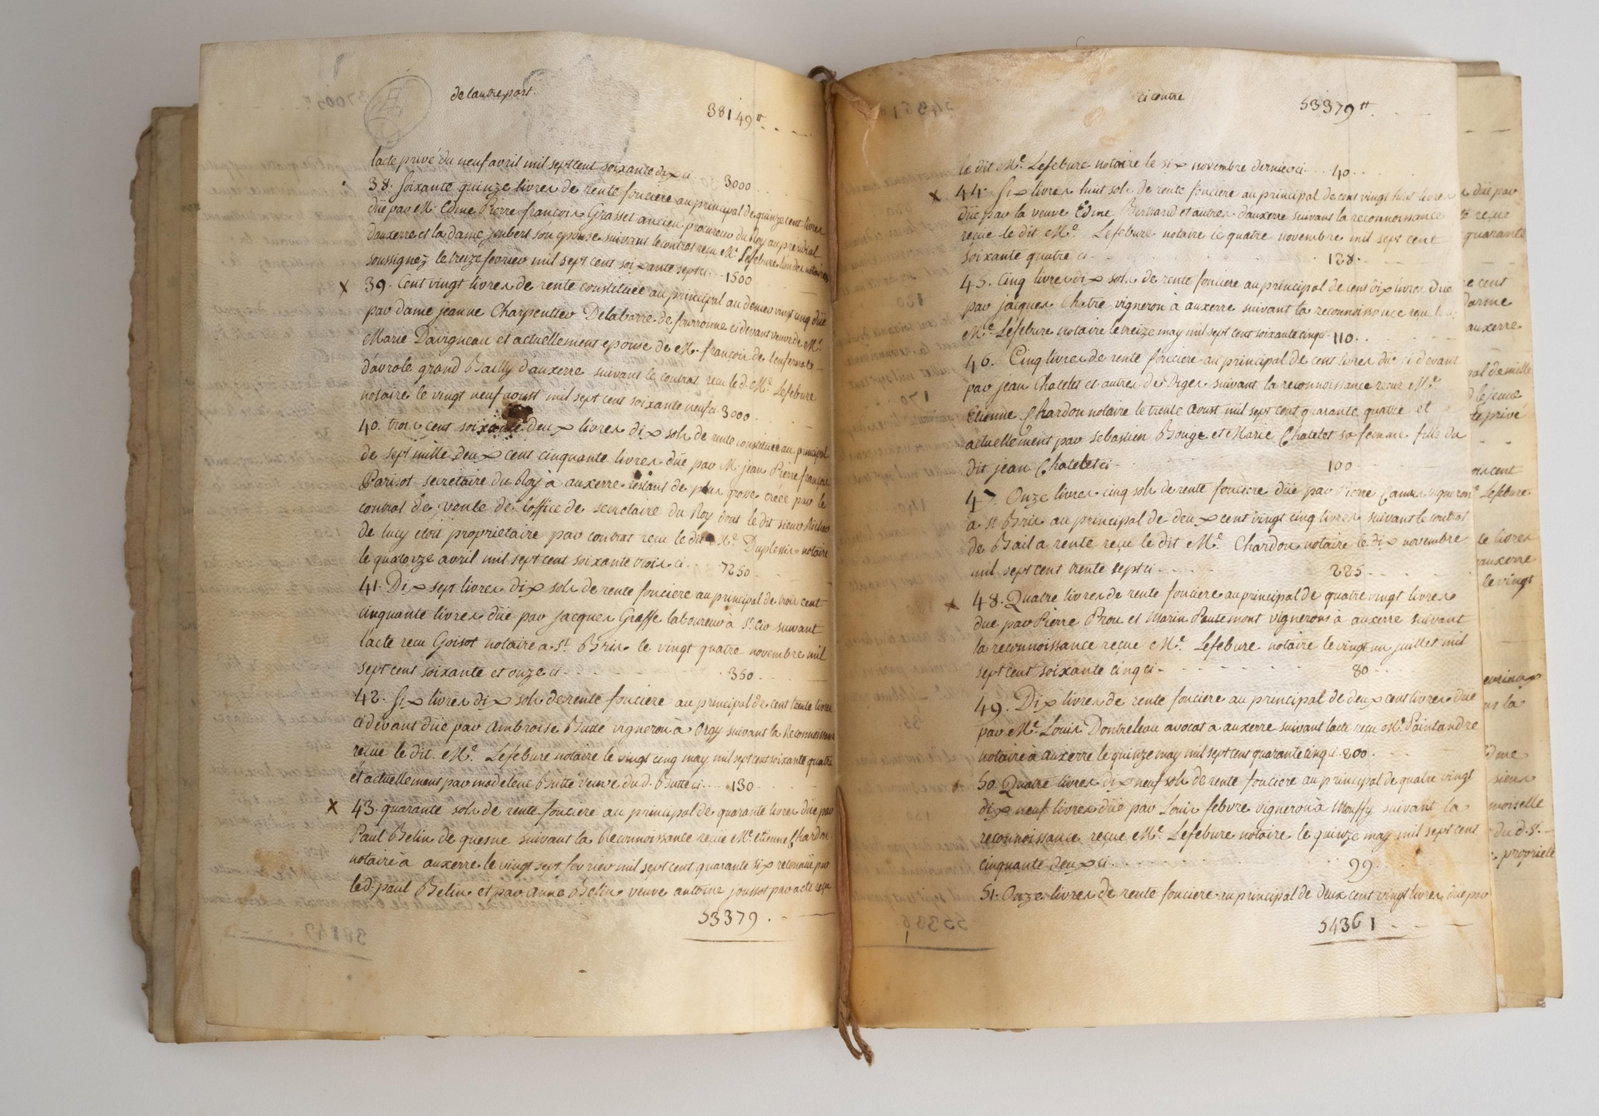 de l'autre part.
38149tt
l'acte privé du neuf avril mil sept cent soixante dix ci 3000
38. Soixante quinze livres de rente fonciere au principal de quinze cent livres
düe par Mr. Edme Pierre françois Grasset ancien procureur du Roy au presidial
d'auxerre et la dame Joubert son epouse suivant le contrat reçu Me. Lefebure l'un des notaires
soussignez le treize fevrier mil sept cent soixante sept ci 1500
x 39. Cent vingt livres de rente constituée au principal au denier vingt cinq düe
par dame jeanne Charpentier Delabarre de cidevant veuve de Mr.
Marie Daivgneau et actuellement epouse de Mr. françois de lenfernat
grand Bailly d'auxerre suivant le contrat reçu le d. Me. Lefebure
notaire le vingt neuf aoust mil sept cent soixante neuf ci 3000
40. trois cent soixante deux livres dix sols de rente constituée au principal
de sept mille deux cent cinquante livres düe par M. jean Pierre françois
Parisot secretaire du Roy à auxerre restans de plus grosse créée par le
contrat de vente de l'office de secretaire du Roy dont le dit sieur
de Lucy etoit proprietaire par contrat reçu le dit Me. Duplessis notaire
le quatorze avril mil sept cent soixante trois ci 7250
41. Dix sept livres dix sols de rente fonciere au principal de trois cent
cinquante livres düe par Jacques Graffe laboureur à St. Cir suivant
l'acte reçu Goisot notaire à St. Bris le vingt quatre novembre mil
sept cent soixante et onze ci 350
42. Six livres dix sols de rente fonciere au principal de cent trente livres
cidevant düe par Ambroise Butte vigneron à Orgy suivant la Reconnoissance
reçue le dit Me. Lefebure notaire le vingt cinq may mil sept cent soixante quatre
et actuellement par madeleine Butte veuve du d. Butte ci 130
x 43. quarante sols de rente fonciere au principal de quarante livres düe par
Paul Belin de quesne suivant la Reconnoissance reçue Me. etienne Chardon
notaire à auxerre le vingt sept fevrier mil sept cent quarante six reconnüe par
led. paul Belin et par Anne Belin veuve antoine joussot par acte reçu
53379
ci contre
53379tt
le dit Me. Lefebure notaire le six novembre dernier ci 40
x 44. Six livres huit sols de rente fonciere au principal de cent vingt huit livres
düe par la veuve Edme Bernard et autres d'auxerre suivant la reconnoissance
reçue le dit Me. Lefebure notaire le quatre novembre mil sept cent
soixante quatre ci 128
45. Cinq livres dix sols de rente fonciere au principal de cent dix livres düe
par jacques Chabre vigneron à auxerre suivant la reconnoissance reçu
Me. Lefebure notaire le treize may mil sept cent soixante cinq ci 110
46. Cinq livres de rente fonciere au principal de cent livres düe cidevant
par jean Chatelet et autres de Piges suivant la reconnoissance reçue Me.
Etienne Chardon notaire le trente Aoust mil sept cent quarante quatre et
actuellement par sebastien Bouge et Marie Chatelet sa femme fille du
dit jean Chatelet ci 100
47. Onze livres cinq sols de rente fonciere düe par Pierre Camus vigneron
à St. Bris au principal de deux cent vingt cinq livres suivant le contrat
de Bail a rente reçu le dit Me. Chardon notaire le dix novembre
mil sept cent trente sept ci 225
x 48. Quatre livres de rente fonciere au principal de quatre vingt livres
due par Pierre Prou et Marin Pautemont vignerons à auxerre suivant
la reconnoissance reçue Me. Lefebure notaire le vingt un juillet mil
sept cent soixante cinq ci 80
49. Dix livres de rente fonciere au principal de deux cent livres due
par Me. Louis Dontreleau avocat à auxerre suivant l'acte reçu Me. Saintandré
notaire à auxerre le quinze may mil sept cent quarante cinq ci 200
50. Quatre livres dix neuf sols de rente fonciere au principal de quatre vingt
dix neuf livres düe par Louis febvre vigneron à Mouffy suivant la
reconnoissance reçue Me. Lefebure notaire le quinze may mil sept cent
cinquante deux ci 99
51. Onze livres de rente fonciere au principal de deux cent vingt livres due par
54361